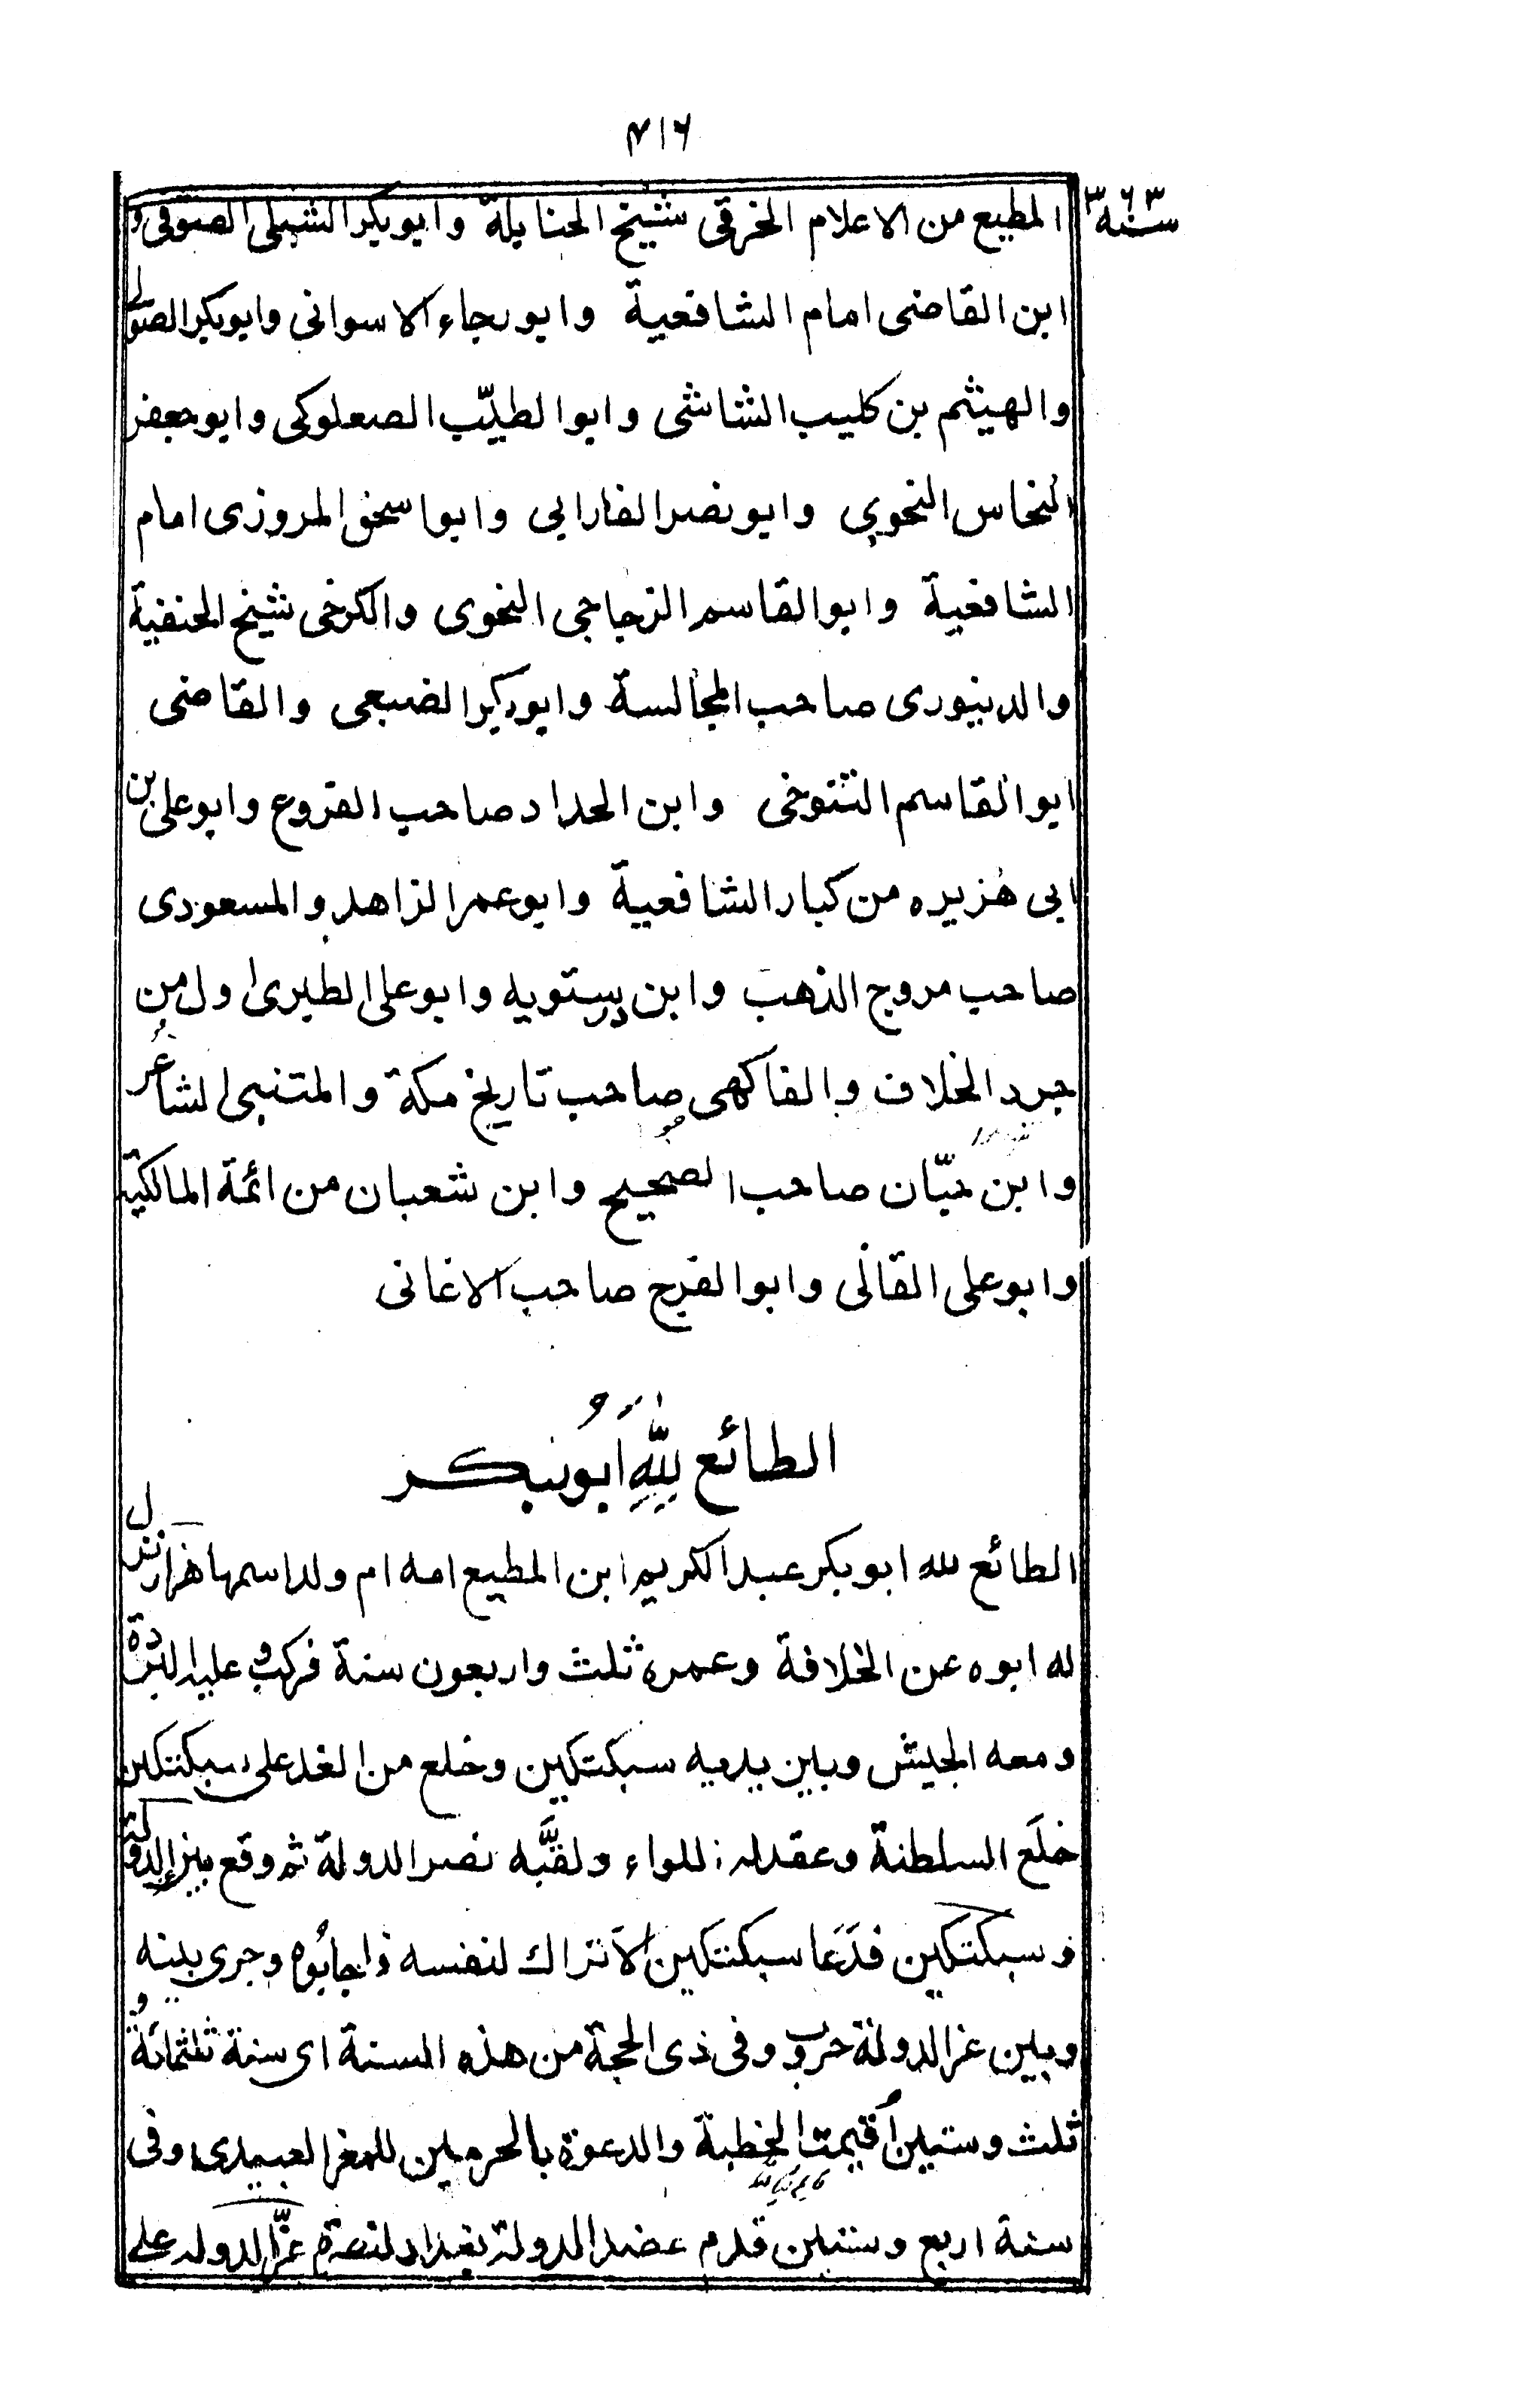 ۴۱۶
سنة ۳۶۳
المطيع من الاعلام الخرقى شيخ الحنابلة وابوبكر الشبلى الصوفى و
ابن القاضى امام الشافعية وابورجاء الاسوانى وابوبكر الصولى
والهيثم بن كليب الشاشى وابوالطيّب الصعلوكى وابوجعفر
النحاس النحوي وابونصر الفارابى وابواسحق المروزى امام
الشافعية وابوالقاسم الزجاجى النحوى والكرخى شيخ الحنفية
والدينورى صاحب المجالسة وابوبكر الضبعى والقاضى
ابوالقاسم التنوخى وابن الحداد صاحب الفروع وابوعلى بن
ابى هزيره من كبار الشافعية وابوعمر الزاهد والمسعودى
صاحب مروج الذهب وابن درستويه وابوعلى الطبرى اول من
جرد الخلاف والفاكهى صاحب تاريخ مكة والمتنبى الشاعر
وابن حبّان صاحب الصحيح وابن شعبان من ائمة المالكية
وابوعلى القالى وابوالفرج صاحب الاغانى
الطائع لِلّٰهِ اَبُوبكر
الطائع لله ابوبكر عبدالكريم ابن المطيع امه ام ولد اسمها هزار نزل
له ابوه عن الخلافة وعمره ثلث واربعون سنة فركب وعليه البردة
ومعه الجيش وبين يديه سبكتكين وخلع من الغد على سبكتكين
خلَع السلطنة وعقد له اللواء ولقبَّه نصر الدولة ثم وقع بين عزالدولة
وسبكتكين فدَعَا سبكتكين الاَتراك لنفسه فاجابُوه وجرى بينه
وبين عزالدولة حروب وفى ذى الحجة من هذه السنة اى سنة ثلثمائة و
ثلث وستين اُقيمت الخطبة والدعوة بالحرمين للمعز العبيدى وفى
سنة اربع وستين قدم عضدالدولة بغداد لنصرة عزّالدوله على